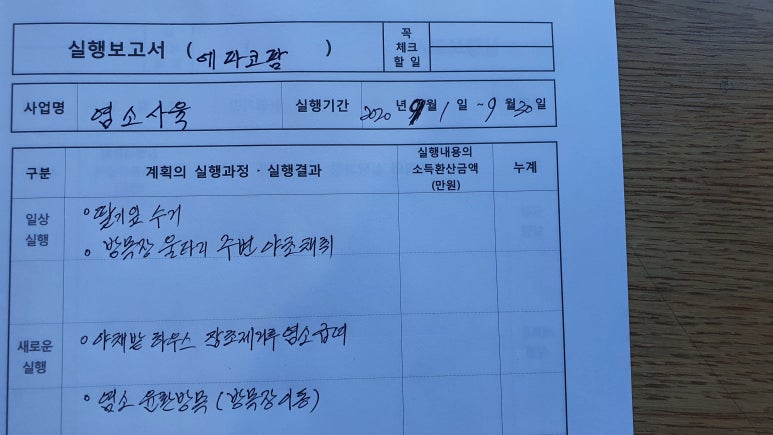 실행보고서 ( 에파코팜 )
꼭
체크
할 일
사업명 염소사육 실행기간 2020 년 9월 1 일 ~ 9 월 30 일
구분 계획의 실행과정 · 실행결과 실행내용의 소득환산금액 (만원) 누계
일상
실행
○ 딸기잎 수거
○ 방목장 울타리 주변 야초채취
새로운
실행
○ 야채밭 하우스 잡초제거후 염소급여
○ 염소 윤환방목 (방목장이동)